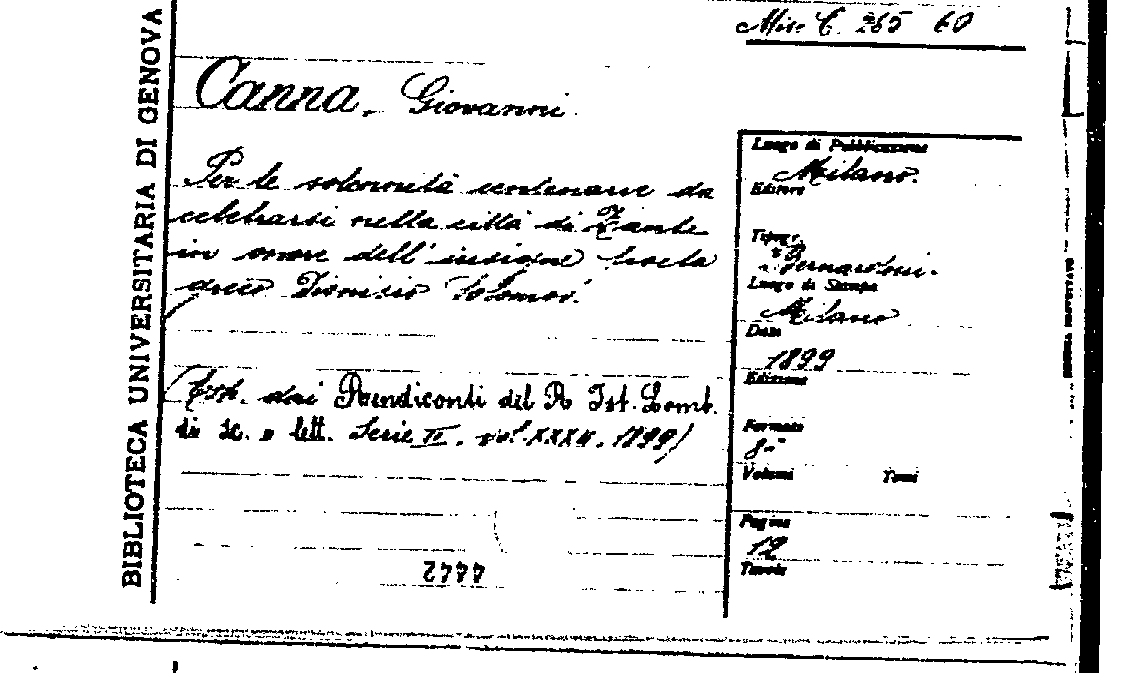 BIBLIOTECA UNIVERSITARIA DI GENOVA
Misc C. 265 60
Canna, Giovanni.
Per le solennità centenarie da
celebrarsi nella città di Zante
in onore dell'insigne Poeta
greco Dionisio Solomos.
(Estr. dai Rendiconti del R. Ist. Lomb.
di sc. e lett. Serie II. vol. XXXII. 1899)
4442
Luogo di Pubblicazione
Milano.
Editore
Tipogr.
Bernardoni.
Luogo di Stampa
Milano
Data
1899
Edizione
Formato
8°
Volumi Tomi
Pagine
12
Tavole